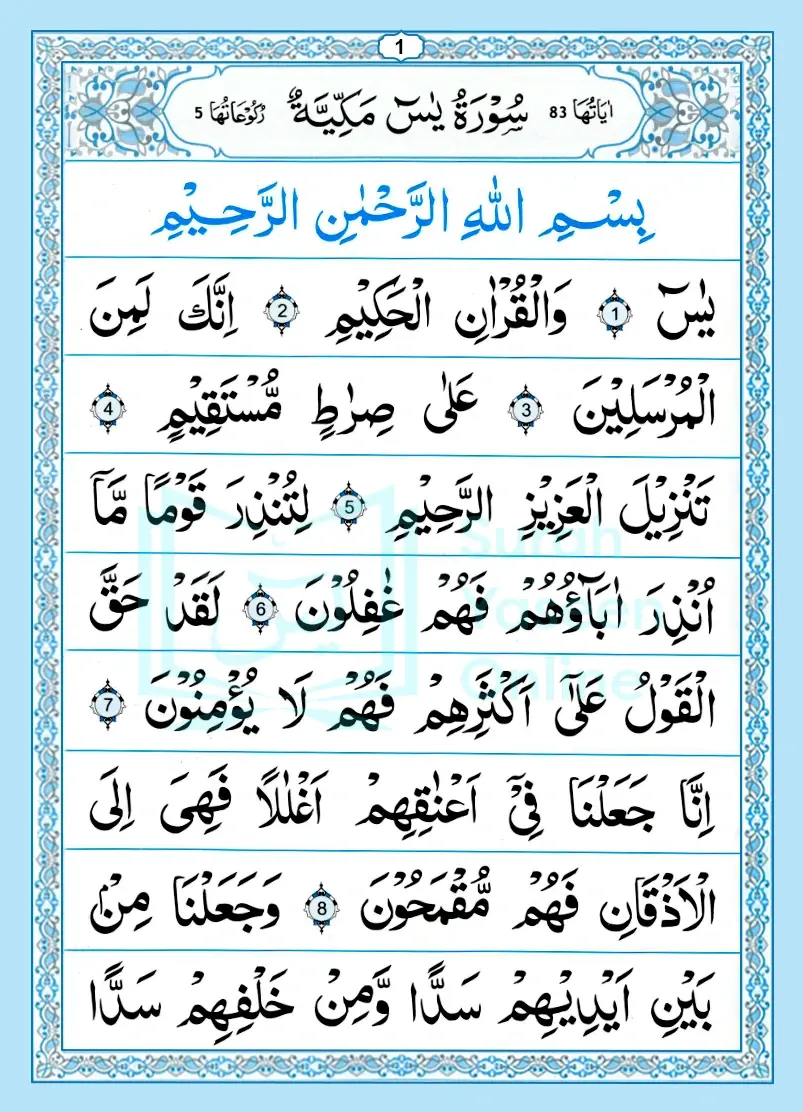 1
اٰيَاتُهَا 83 سُوْرَةُ يٰسٓ مَكِّيَّةٌ رُكُوْعَاتُهَا 5
بِسْمِ اللهِ الرَّحْمٰنِ الرَّحِيْمِ
يٰسٓ 1 وَالْقُرْاٰنِ الْحَكِيْمِ 2 اِنَّكَ لَمِنَ
الْمُرْسَلِيْنَ 3 عَلٰى صِرٰطٍ مُّسْتَقِيْمٍ 4
تَنْزِيْلَ الْعَزِيْزِ الرَّحِيْمِ 5 لِتُنْذِرَ قَوْمًا مَّآ
اُنْذِرَ اٰبَآؤُهُمْ فَهُمْ غٰفِلُوْنَ 6 لَقَدْ حَقَّ
الْقَوْلُ عَلٰٓى اَكْثَرِهِمْ فَهُمْ لَا يُؤْمِنُوْنَ 7
اِنَّا جَعَلْنَا فِيْٓ اَعْنٰقِهِمْ اَغْلٰلًا فَهِىَ اِلَى
الْاَذْقَانِ فَهُمْ مُّقْمَحُوْنَ 8 وَجَعَلْنَا مِنْۢ
بَيْنِ اَيْدِيْهِمْ سَدًّا وَّمِنْ خَلْفِهِمْ سَدًّا
Surah
Yaseen
Online